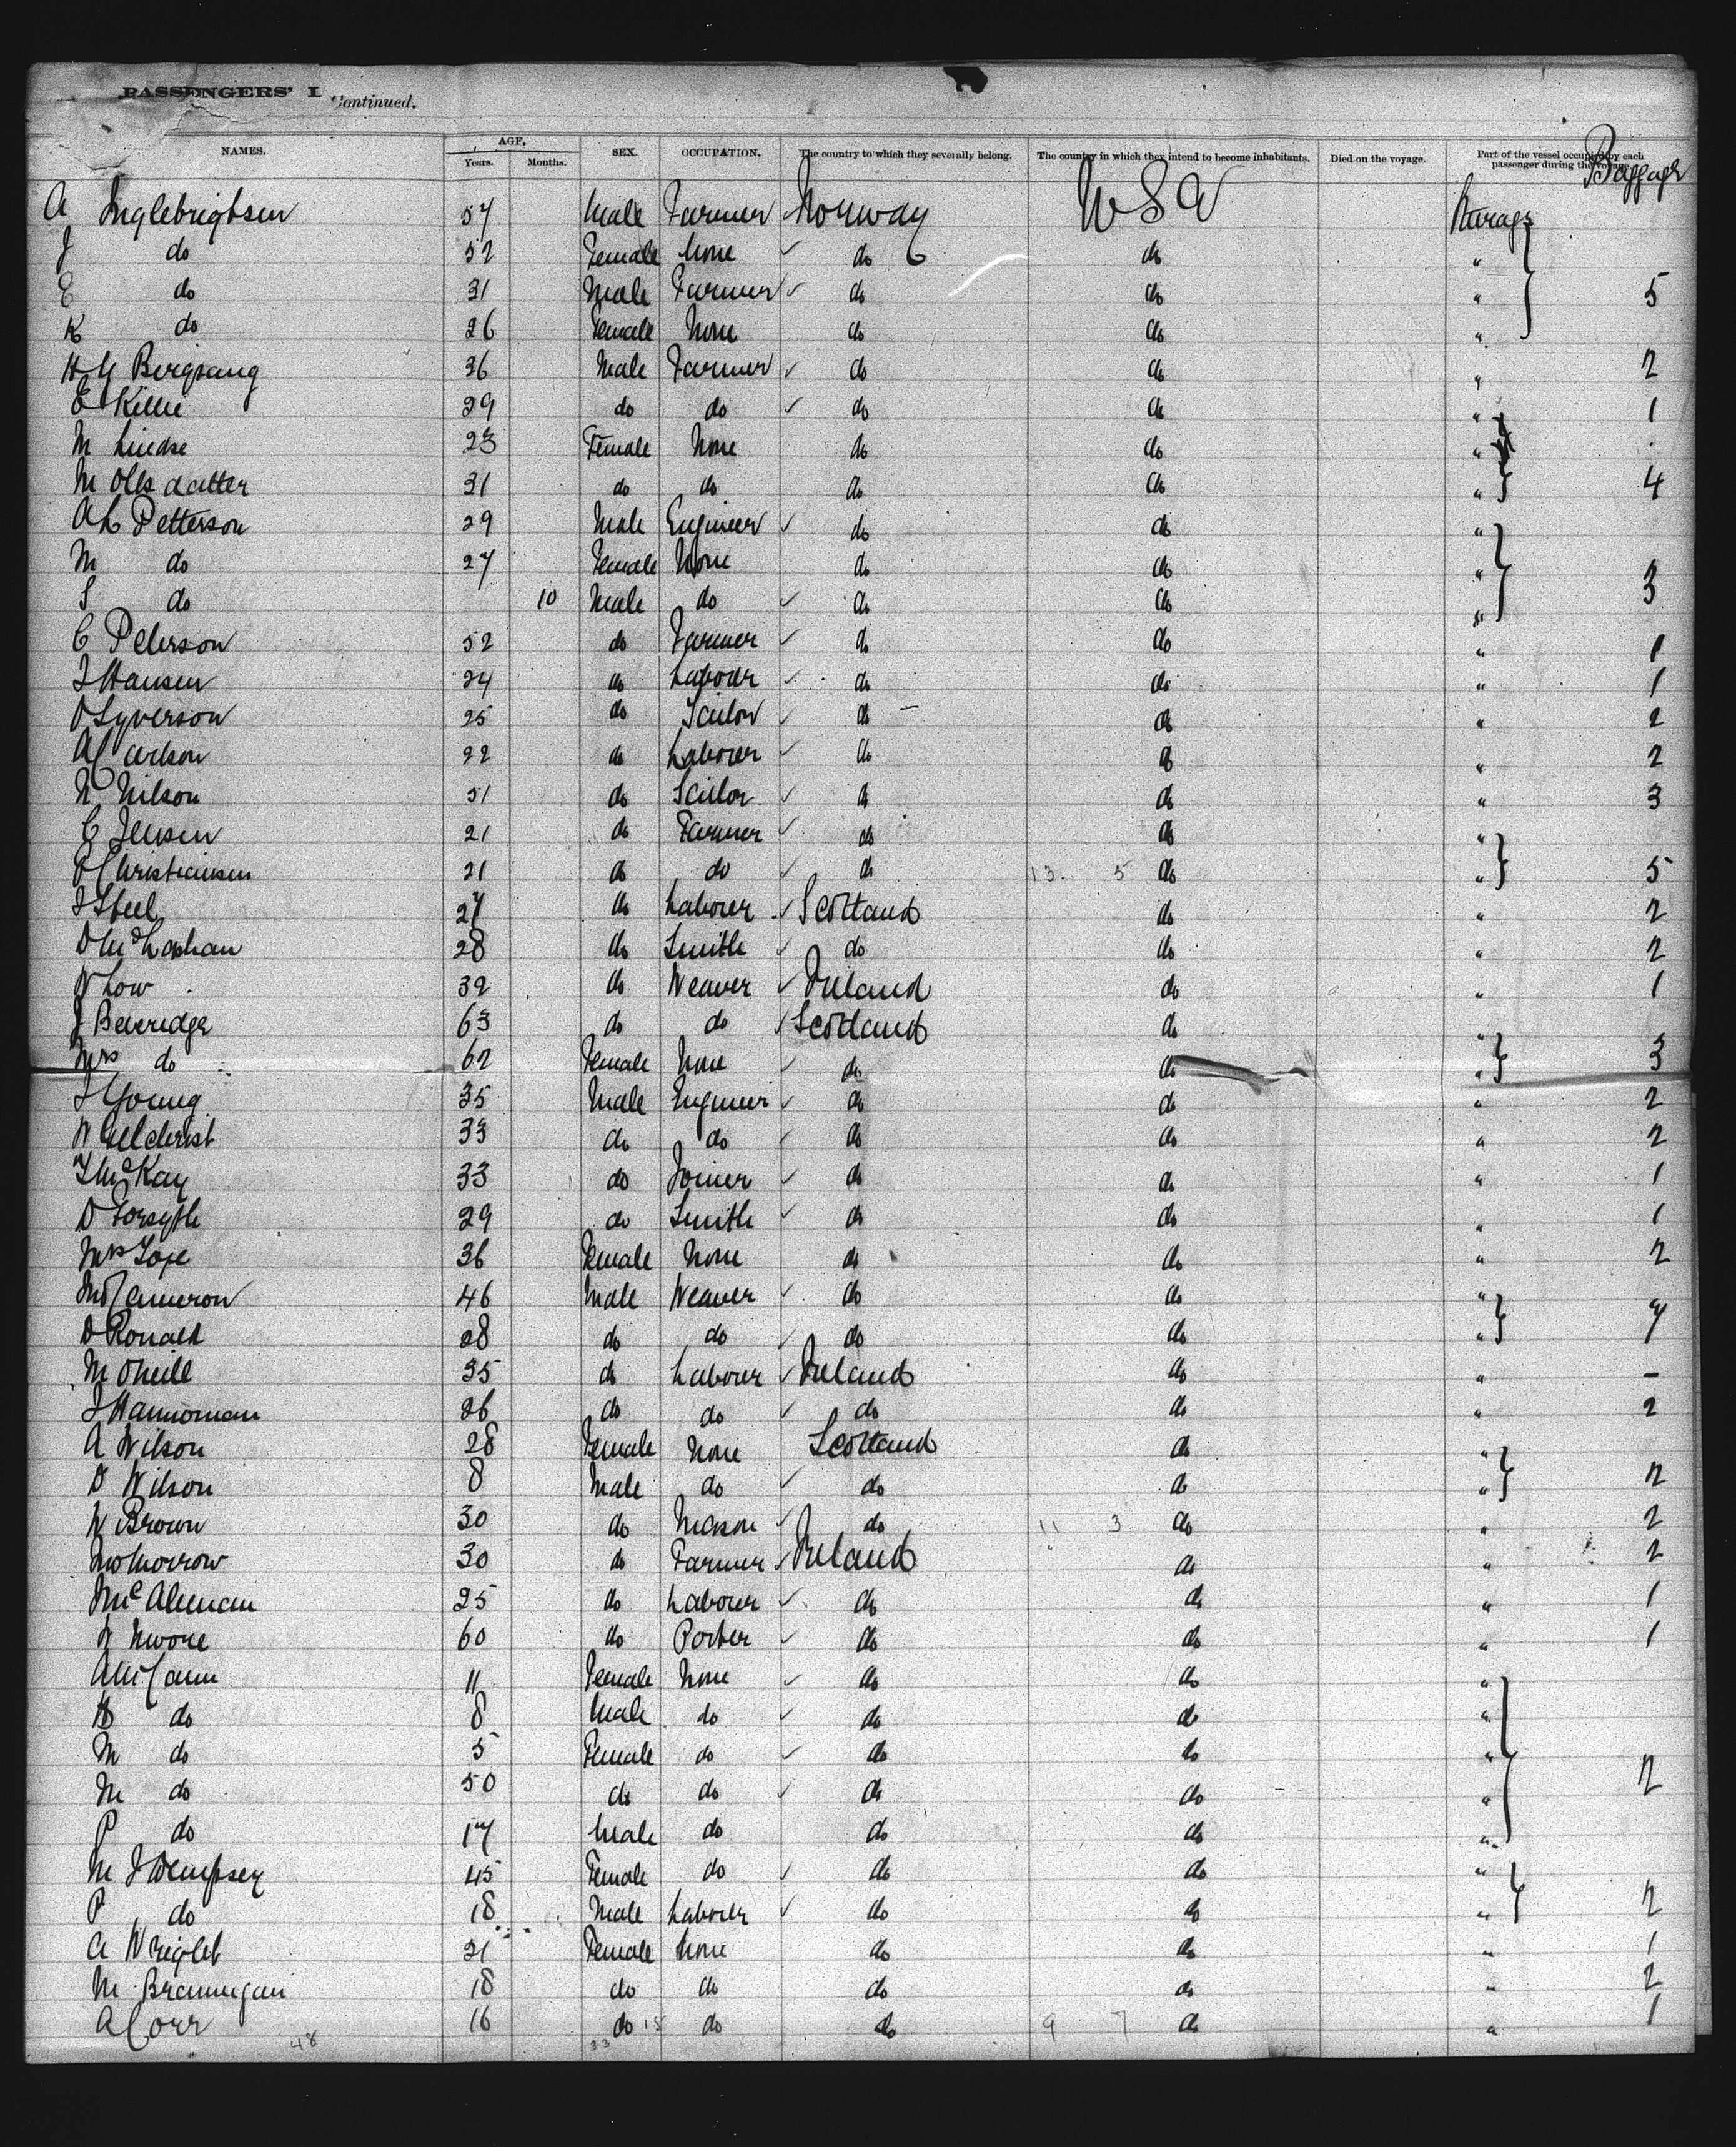 PASSENGERS' L Continued.
NAMES. AGE. Years. Months. SEX. OCCUPATION. The country to which they severally belong. The country in which they intend to become inhabitants. Died on the voyage. Part of the vessel occupied by each passenger during the voyage. Baggage
A Inglebrightsen 57 Male Farmer Norway USA Steerage
J do 52 Female None do do "
E do 31 Male Farmer do do " 5
K do 26 Female None do do "
H Bergsaug 36 Male Farmer do do " 2
E Killie 29 do do do do " 1
M Lindse 23 Female None do do "
M Olls datter 31 do do do do " 4
A L Petterson 29 Male Engineer do do "
M do 27 Female None do do "
S do 10 Male do do do " 3
C Peterson 52 do Farmer do do " 1
J Hansen 24 do Labour do do " 1
O Syverson 25 do Sailor do do " 2
A Carlson 22 do Laborer do do " 2
N Nilson 51 do Sailor do do " 3
C Jensen 21 do Farmer do do "
O Christiansen 21 do do do 13. 5 do " 5
J Steel 27 do Laborer Scotland do " 2
D 28 do Smith do do " 2
W Low 32 do Weaver Ireland do " 1
J Beveridge 63 do do Scotland do "
Mrs do 62 Female None do do " 3
J Young 35 Male Engineer do do " 2
W Gilchrist 33 do do do do " 2
J McKay 33 do Joiner do do " 1
D Forsyth 29 do Smith do do " 1
Mrs 36 Female None do do " 2
Cameron 46 Male Weaver do do "
D Ronald 28 do do do do " 7
M Oneill 35 do Laborer Ireland do " -
J Hannoman 26 do do do do " 2
A Wilson 28 Female None Scotland do "
D Wilson 8 Male do do do " 2
W Brown 30 do Mason do 11 3 do " 2
Morrow 30 do Farmer Ireland do " 2
25 do Laborer do do " 1
W Mvore 60 do Porter do do " 1
A McCann 11 Female None do do "
B do 8 Male do do do "
M do 5 Female do do do "
M do 50 do do do do " 2
P do 17 Male do do do "
M J Dempsey 45 Female do do do "
P do 18 Male Laborer do do " 2
A Wright 21 Female None do do " 1
M Brannigan 18 do do do do " 2
A Corr 16 do 15 do do 9 7 do " 1
48 33